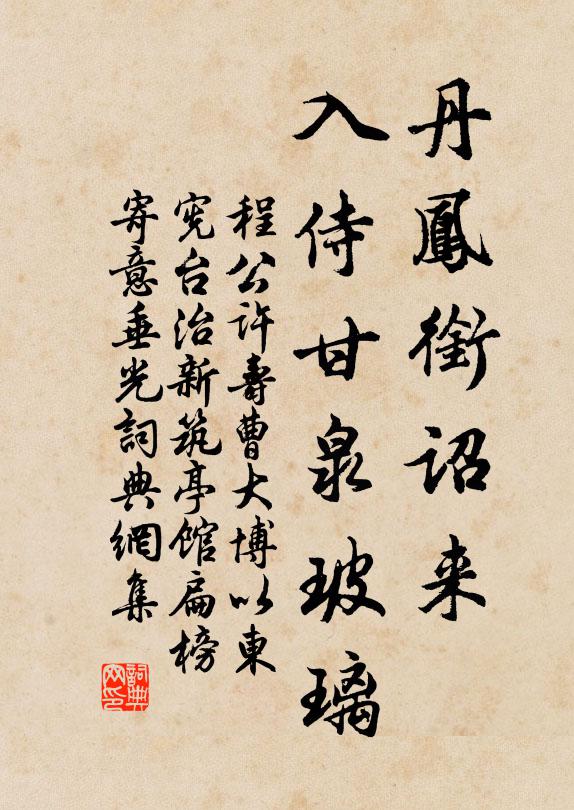 丹鳳銜詔来
入侍甘泉玻璃
程公許壽曹大博以東
宪台治新筑亭館扁榜
寄意垂光詞典網集
詞典网印